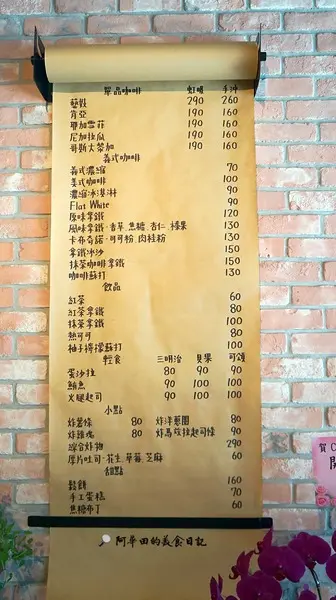 單品咖啡 虹吸 手沖
藝妓 290 260
肯亞 190 160
耶加雪菲 190 160
尼加拉瓜 190 160
哥斯大黎加 190 160
義式咖啡
義式濃縮 70
美式咖啡 100
濃縮冰淇淋 90
Flat White 90
原味拿鐵 120
風味拿鐵·香草.焦糖.杏仁.榛果 130
卡布奇諾·可可粉.肉桂粉 130
拿鐵冰沙 150
抹茶咖啡拿鐵 150
咖啡蘇打 130
飲品
紅茶 60
紅茶拿鐵 80
抹茶拿鐵 100
熱可可 80
柚子檸檬蘇打 100
輕食 三明治 貝果 可頌
蛋沙拉 80 90 90
鮪魚 90 100 100
火腿起司 90 100 100
小點
炸薯條 80 炸洋蔥圈 80
炸雞塊 80 炸馬玫拉起司條 90
綜合炸物 290
厚片吐司·花生.草莓.芝麻 60
甜點
鬆餅 160
手工蛋糕 70
焦糖布丁 60
阿華田的美食日記
賀 C